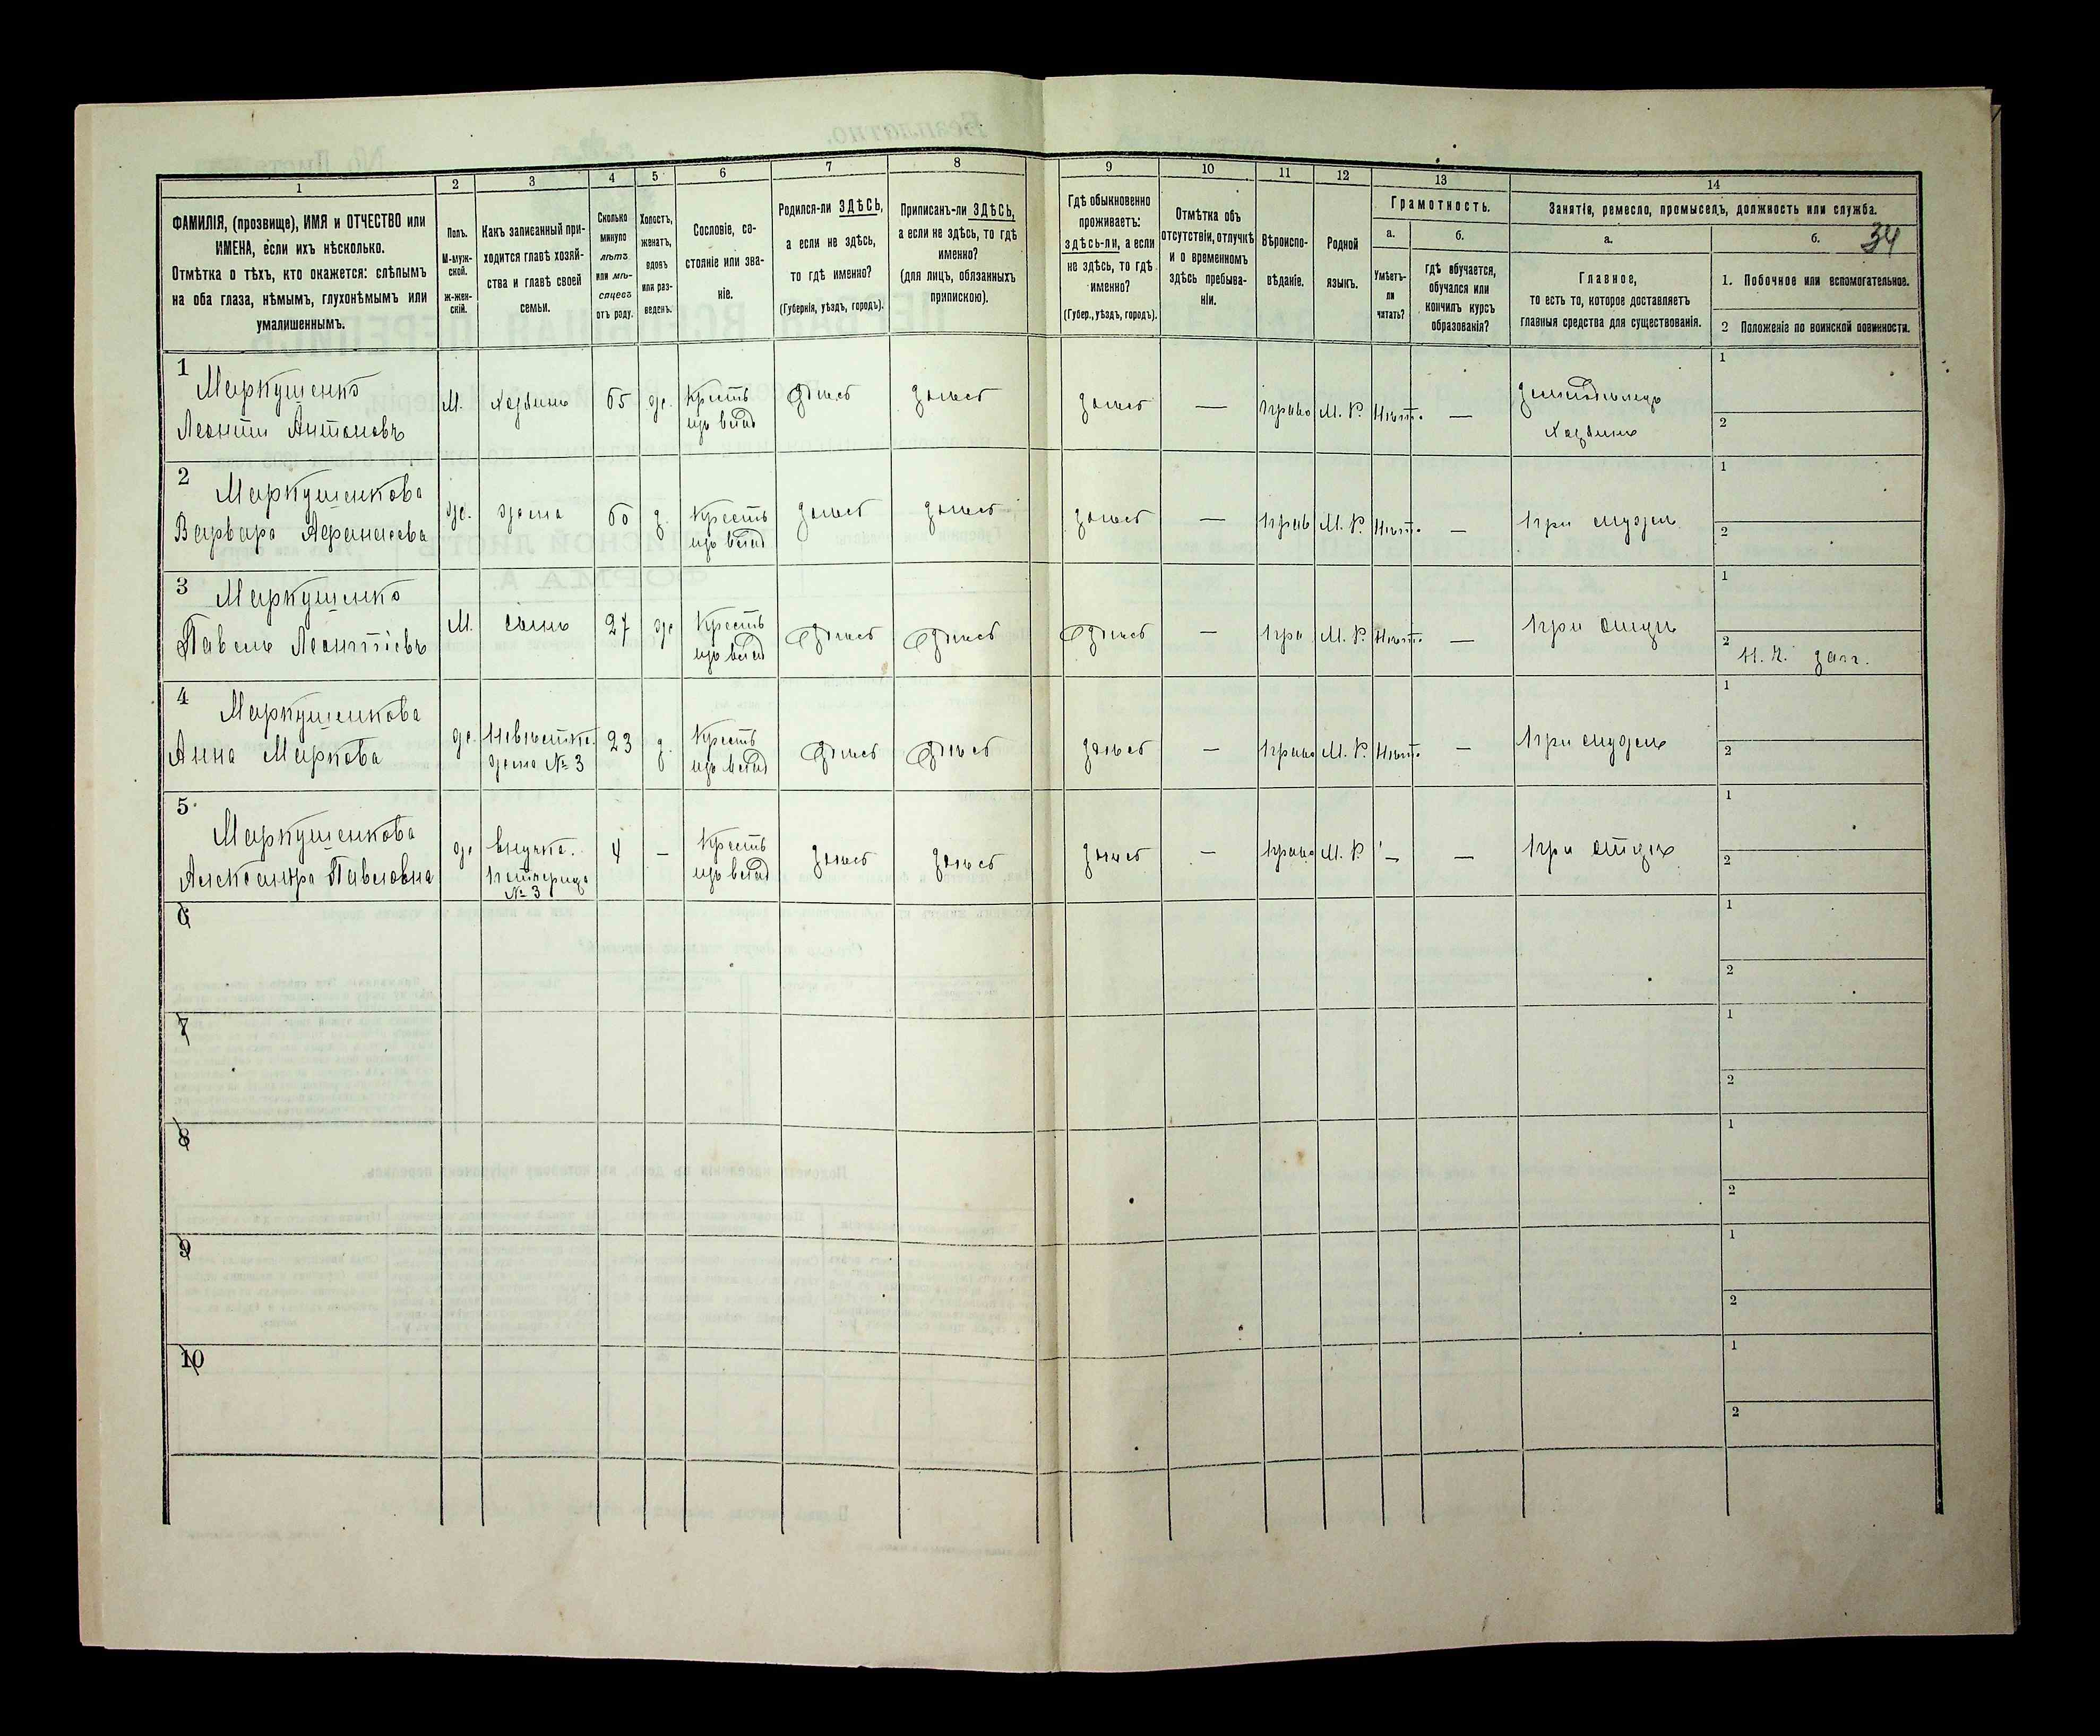 1 2 3 4 5 6 7 8 9 10 11 12 13 14
ФАМИЛІЯ, (прозвище), ИМЯ и ОТЧЕСТВО или
ИМЕНА, если ихъ нѣсколько.
Отмѣтка о тѣхъ, кто окажется: слѣпымъ
на оба глаза, нѣмымъ, глухонѣмымъ или
умалишеннымъ.
Полъ.
М-муж-
ской.
ж-жен-
скій.
Какъ записанный при-
ходится главѣ хозяй-
ства и главѣ своей
семьи.
Сколько
минуло
лѣтъ
или мѣ-
сяцевъ
отъ роду.
Холостъ,
женатъ,
вдовъ
или раз-
веденъ.
Сословіе, со-
стояніе или зва-
ніе.
Родился-ли ЗДѢСЬ,
а если не здѣсь,
то гдѣ именно?
(Губернія, уѣздъ, городъ).
Приписанъ-ли ЗДѢСЬ,
а если не здѣсь, то гдѣ
именно?
(для лицъ, обязанныхъ
припискою).
Гдѣ обыкновенно
проживаетъ:
здѣсь-ли, а если
не здѣсь, то гдѣ
именно?
(Губер., уѣздъ, городъ).
Отмѣтка объ
отсутствіи, отлучкѣ
и о временномъ
здѣсь пребыва-
ніи.
Вѣроиспо-
вѣданіе.
Родной
языкъ.
Грамотность.
а.
Умѣетъ-
ли
читать?
б.
гдѣ обучается,
обучался или
кончилъ курсъ
образованія?
Занятіе, ремесло, промыселъ, должность или служба.
34
а.
Главное,
то есть то, которое доставляетъ
главныя средства для существованія.
б.
1. Побочное или вспомогательное.
2 Положеніе по воинской повинности.
1
Маркушенко
Леонтій Антоновъ
М. хозяинъ 65 ж. Кресть изъ влад здѣсь здѣсь здѣсь — Право М. Р. Нѣтъ. —
Земледѣлецъ
Хозяинъ
1
2
2
Маркушенкова
Варвара Афанасіева
ж. жена 60 з. Кресть изъ влад здѣсь здѣсь здѣсь — Прав М. Р. Нѣтъ. — При мужѣ
1
2
3
Маркушенко
Павелъ Леонтіевъ
М. сынъ 27 ж Кресть изъ влад здѣсь здѣсь здѣсь — Пра М. Р. Нѣтъ. — При отцѣ
1
2
4
Маркушенкова
Анна Маркова
ж. Невѣстка. жена № 3 23 з. Кресть изъ влад здѣсь здѣсь здѣсь — Право М. Р. Нѣтъ. — При мужѣ
1
2
5
Маркушенкова
Александра Павловна
ж внучка. № 3 4 — Кресть изъ влад здѣсь здѣсь здѣсь — Право М. Р. — — При отцѣ
1
2
6
1
2
7
1
2
8
1
2
9
1
2
10
1
2